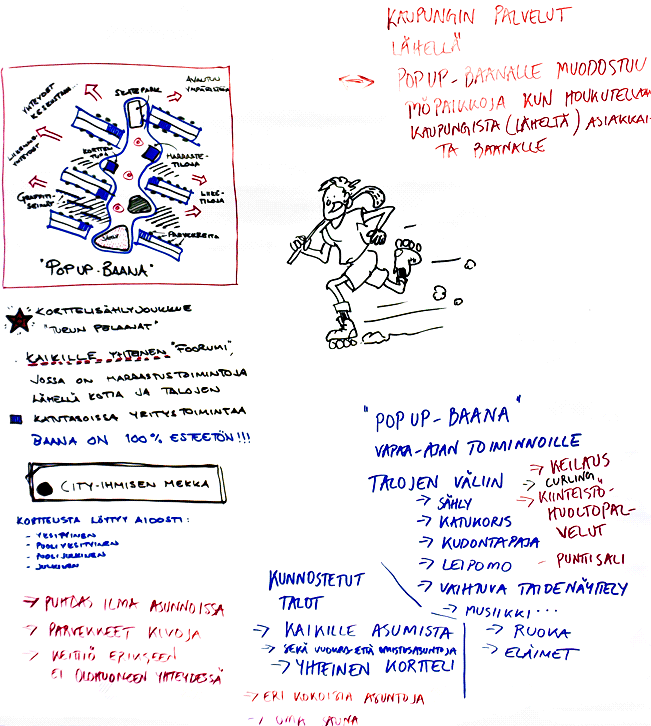 KAUPUNGIN PALVELUT
LÄHELLÄ
POP UP-BAANALLE MUODOSTUU
KUN HOUKUTELLAAN
KAUPUNGISTA (LÄHELTÄ) ASIAKKAI-
TA BAANALLE
SKATEPARK
AVAUTUU
YMPÄRISTÖÖN
YHTEYDET
KESKUSTAAN
KORTTELI-
TUPA
HARRASTE-
TILOJA
GRAFFITI-
SEINÄT
LIIKE-
TILOJA
PARVEKKEITA
"POP UP-BAANA"
KORTTELISÄHLYJOUKKUE
"TURUN PELAAJAT"
KAIKILLE YHTEINEN "FOORUMI",
JOSSA ON HARRASTUSTOIMINTOJA
LÄHELLÄ KOTIA JA TALOJEN
KANTASOISSA YRITYSTOIMINTAA
BAANA ON 100% ESTEETÖN!!!
CITY-IHMISEN MEKKA
KORTTELISTA LÖYTYY AIDOSTI:
- YKSITYINEN
- PUOLIYKSITYINEN
- PUOLIJULKINEN
- JULKINEN
→ PUHDAS ILMA ASUNNOISSA
→ PARVEKKEET KIVOJA
→ KEITTIÖ ERIKSEEN
EI OLOHUONEEN YHTEYDESSÄ
"POP UP-BAANA"
VAPAA-AJAN TOIMINNOILLE
TALOJEN VÄLIIN
→ SÄHLY
→ KATUKORIS
→ KUDONTAPAJA
→ LEIPOMO
→ VAIHTUVA TAIDENÄYTTELY
→ MUSIIKKI...
→ RUOKA
→ ELÄIMET
→ KEILAUS
→ CURLING
→ KIINTEISTÖ-
HUOLTOPAL-
VELUT
- PUNTTISALI
KUNNOSTETUT
TALOT
→ KAIKILLE ASUMISTA
→ SEKÄ VUOKRA- ETTÄ OMISTUSASUNTOJA
→ YHTEINEN KORTTELI
→ ERI KOKOISIA ASUNTOJA
→ OMA SAUNA